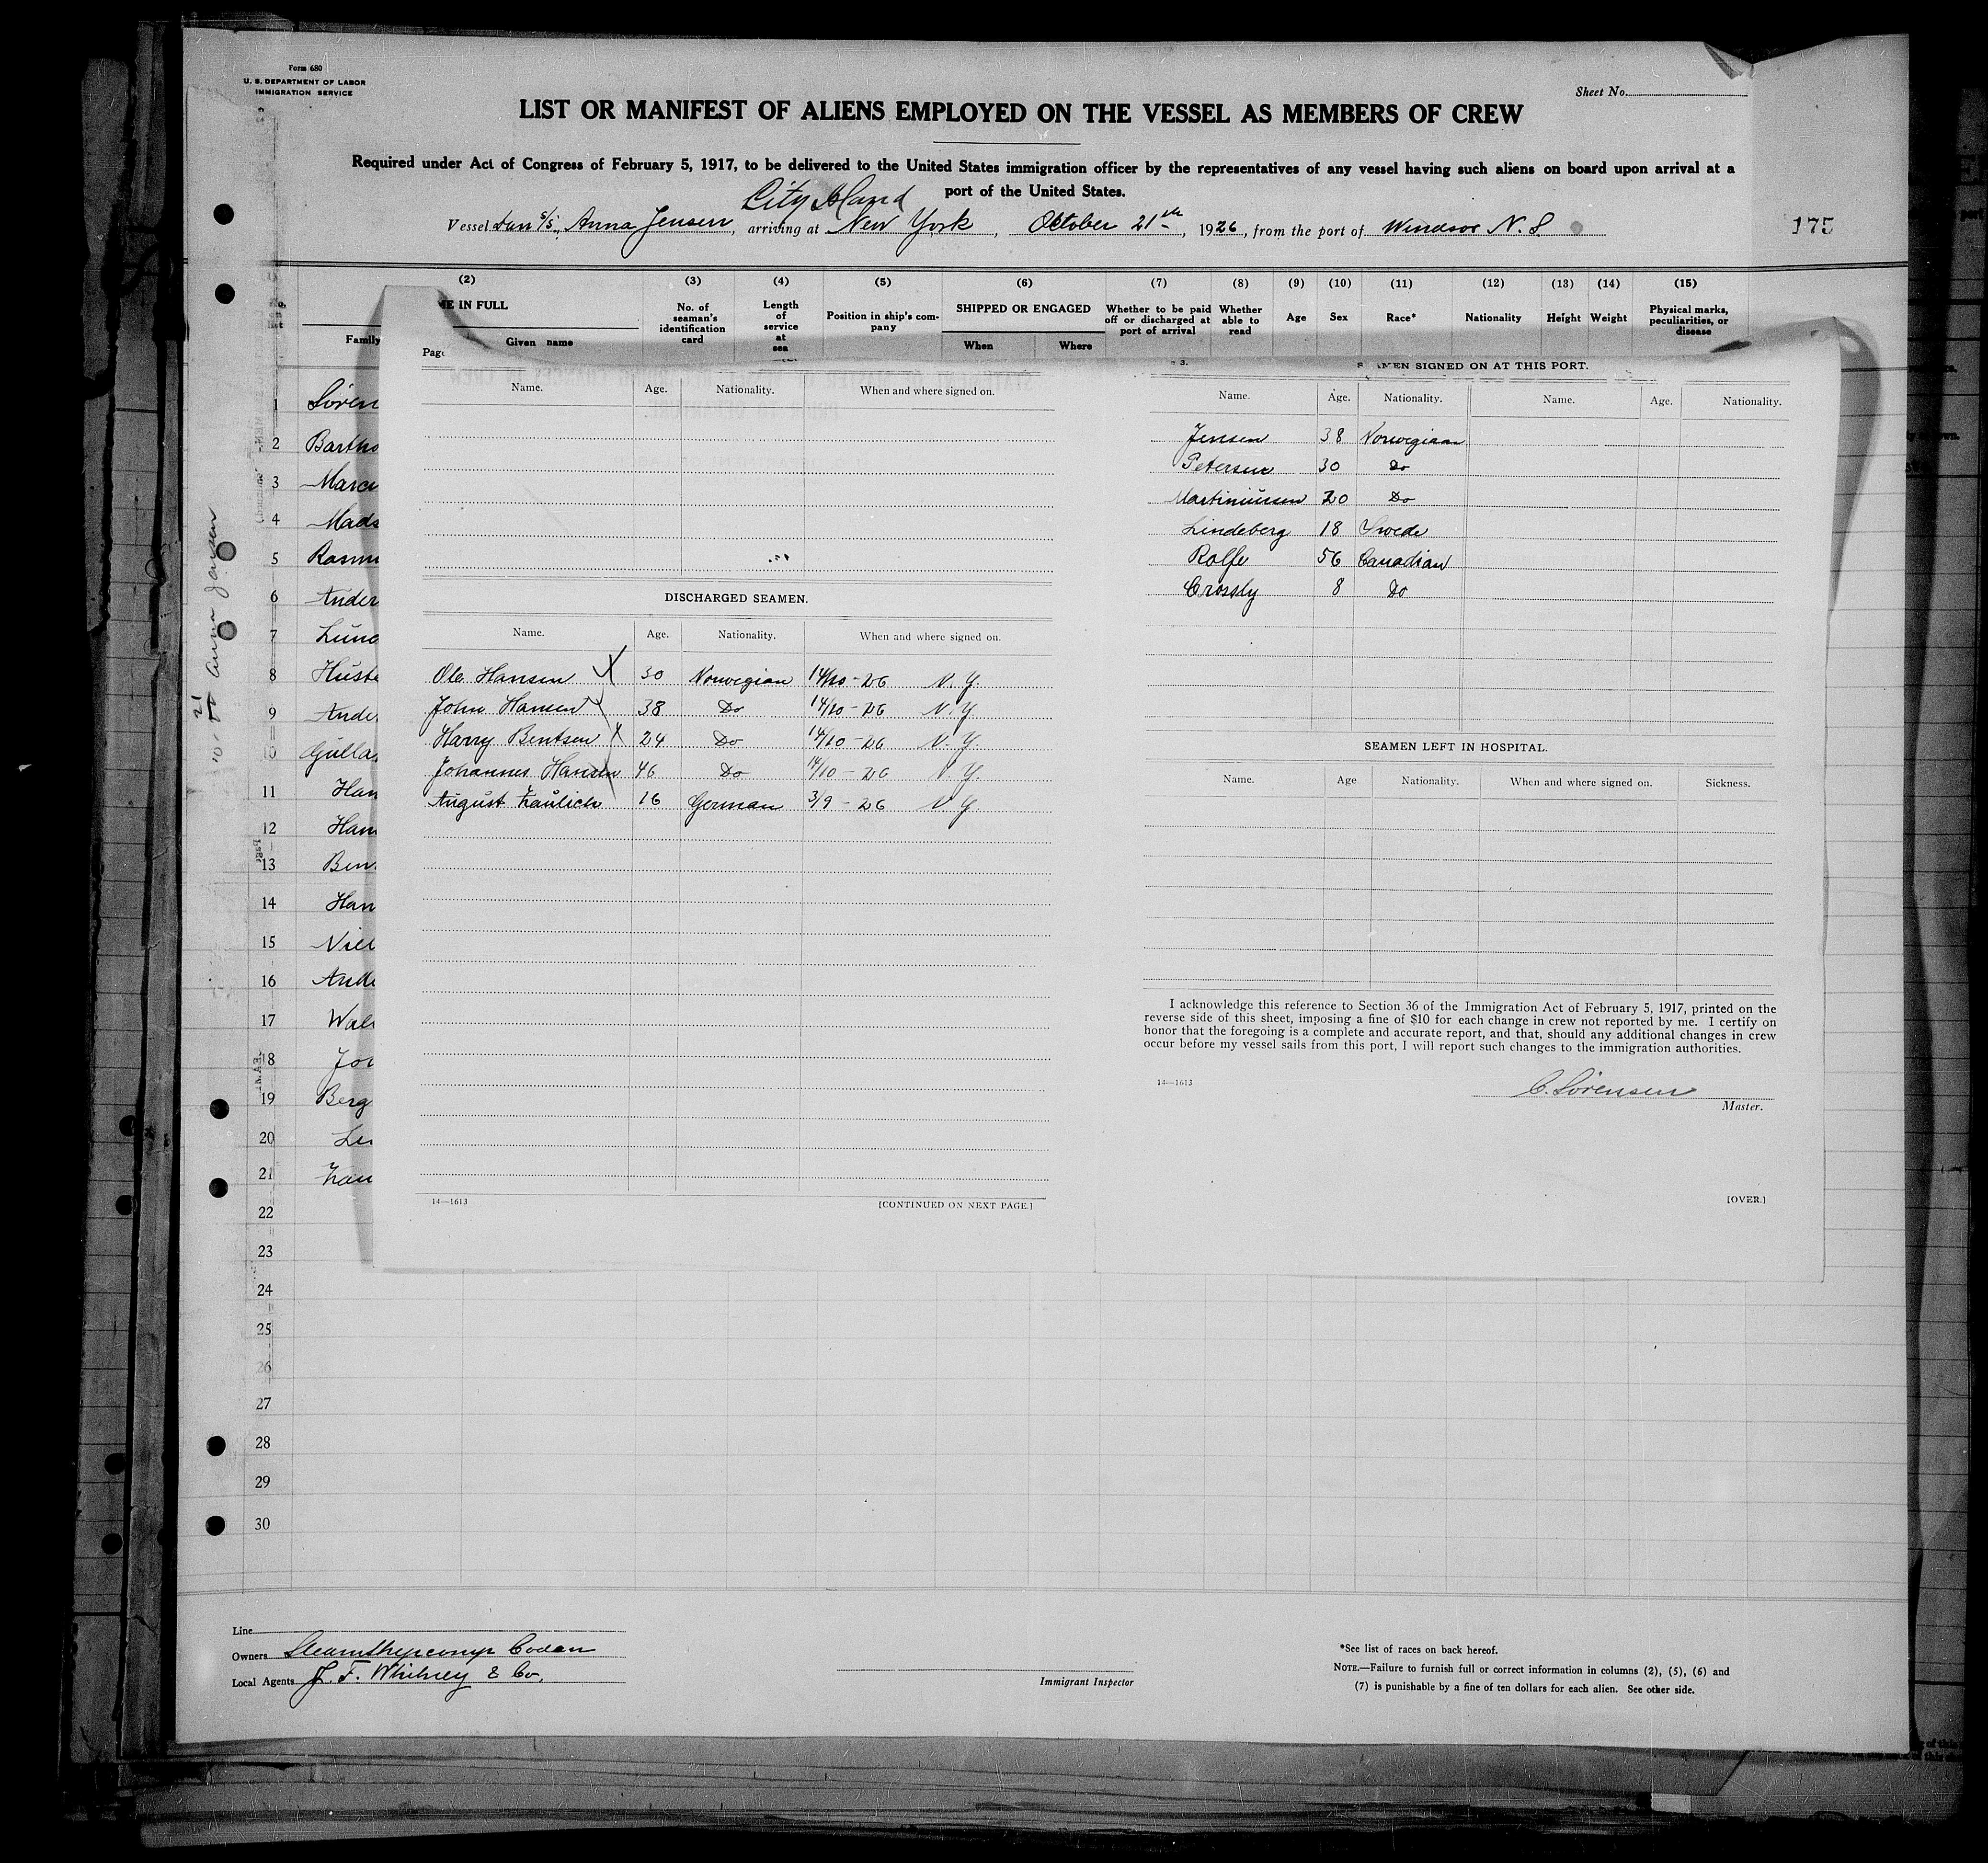 Form 680
U. S. DEPARTMENT OF LABOR
IMMIGRATION SERVICE
Sheet No.
LIST OR MANIFEST OF ALIENS EMPLOYED ON THE VESSEL AS MEMBERS OF CREW
Required under Act of Congress of February 5, 1917, to be delivered to the United States immigration officer by the representatives of any vessel having such aliens on board upon arrival at a
port of the United States.
City Island
Vessel Dan S/S, Anna Jensen, arriving at New York, October 21st, 1926, from the port of Windsor N. S.
175
(2) (3) (4) (5) (6) (7) (8) (9) (10) (11) (12) (13) (14) (15)
ME IN FULL
Family
Given name
No. of seaman's identification card
Length of service at sea
Position in ship's company
SHIPPED OR ENGAGED
When Where
Whether to be paid off or discharged at port of arrival
Whether able to read
Age
Sex
Race*
Nationality
Height
Weight
Physical marks, peculiarities, or disease
1 Sören
2 Bartho
3 Marcu
4 Mads
5 Rasmu
6 Ander
7 Lund
8 Huste
9 Ande
10 Gulla
11 Han
12 Han
13 Ben
14 Han
15 Niel
16 Ande
17 Wal
18 Jo
19 Berg
20
21 Zau
22
23
24
25
26
27
28
29
30
Anna Jensen
Page
Name. Age. Nationality. When and where signed on.
DISCHARGED SEAMEN.
Name. Age. Nationality. When and where signed on.
Ole Hansen X 30 Norwegian 14/10-26 N. Y.
John Hansen 38 Do 14/10-26 N. Y.
Harry Bentsen X 24 Do 14/10-26 N. Y.
Johannes Hansen 46 Do 14/10-26 N. Y.
August Zaulich 16 German 3/9-26 N. Y.
14—1613
[CONTINUED ON NEXT PAGE.]
3.
SEAMEN SIGNED ON AT THIS PORT.
Name. Age. Nationality. Name. Age. Nationality.
Jensen 38 Norwegian
Petersen 30 Do
Martiniussen 20 Do
Lindeberg 18 Swede
Rolfe 56 Canadian
Crossly 8 Do
SEAMEN LEFT IN HOSPITAL.
Name. Age Nationality. When and where signed on. Sickness.
I acknowledge this reference to Section 36 of the Immigration Act of February 5, 1917, printed on the
reverse side of this sheet, imposing a fine of $10 for each change in crew not reported by me. I certify on
honor that the foregoing is a complete and accurate report, and that, should any additional changes in crew
occur before my vessel sails from this port, I will report such changes to the immigration authorities.
14—1613
C. Sörensen
Master.
[OVER.]
Line
Owners Steamshipcomp Codan
Local Agents J. F. Whitney & Co.
Immigrant Inspector
*See list of races on back hereof.
NOTE.—Failure to furnish full or correct information in columns (2), (5), (6) and
(7) is punishable by a fine of ten dollars for each alien. See other side.